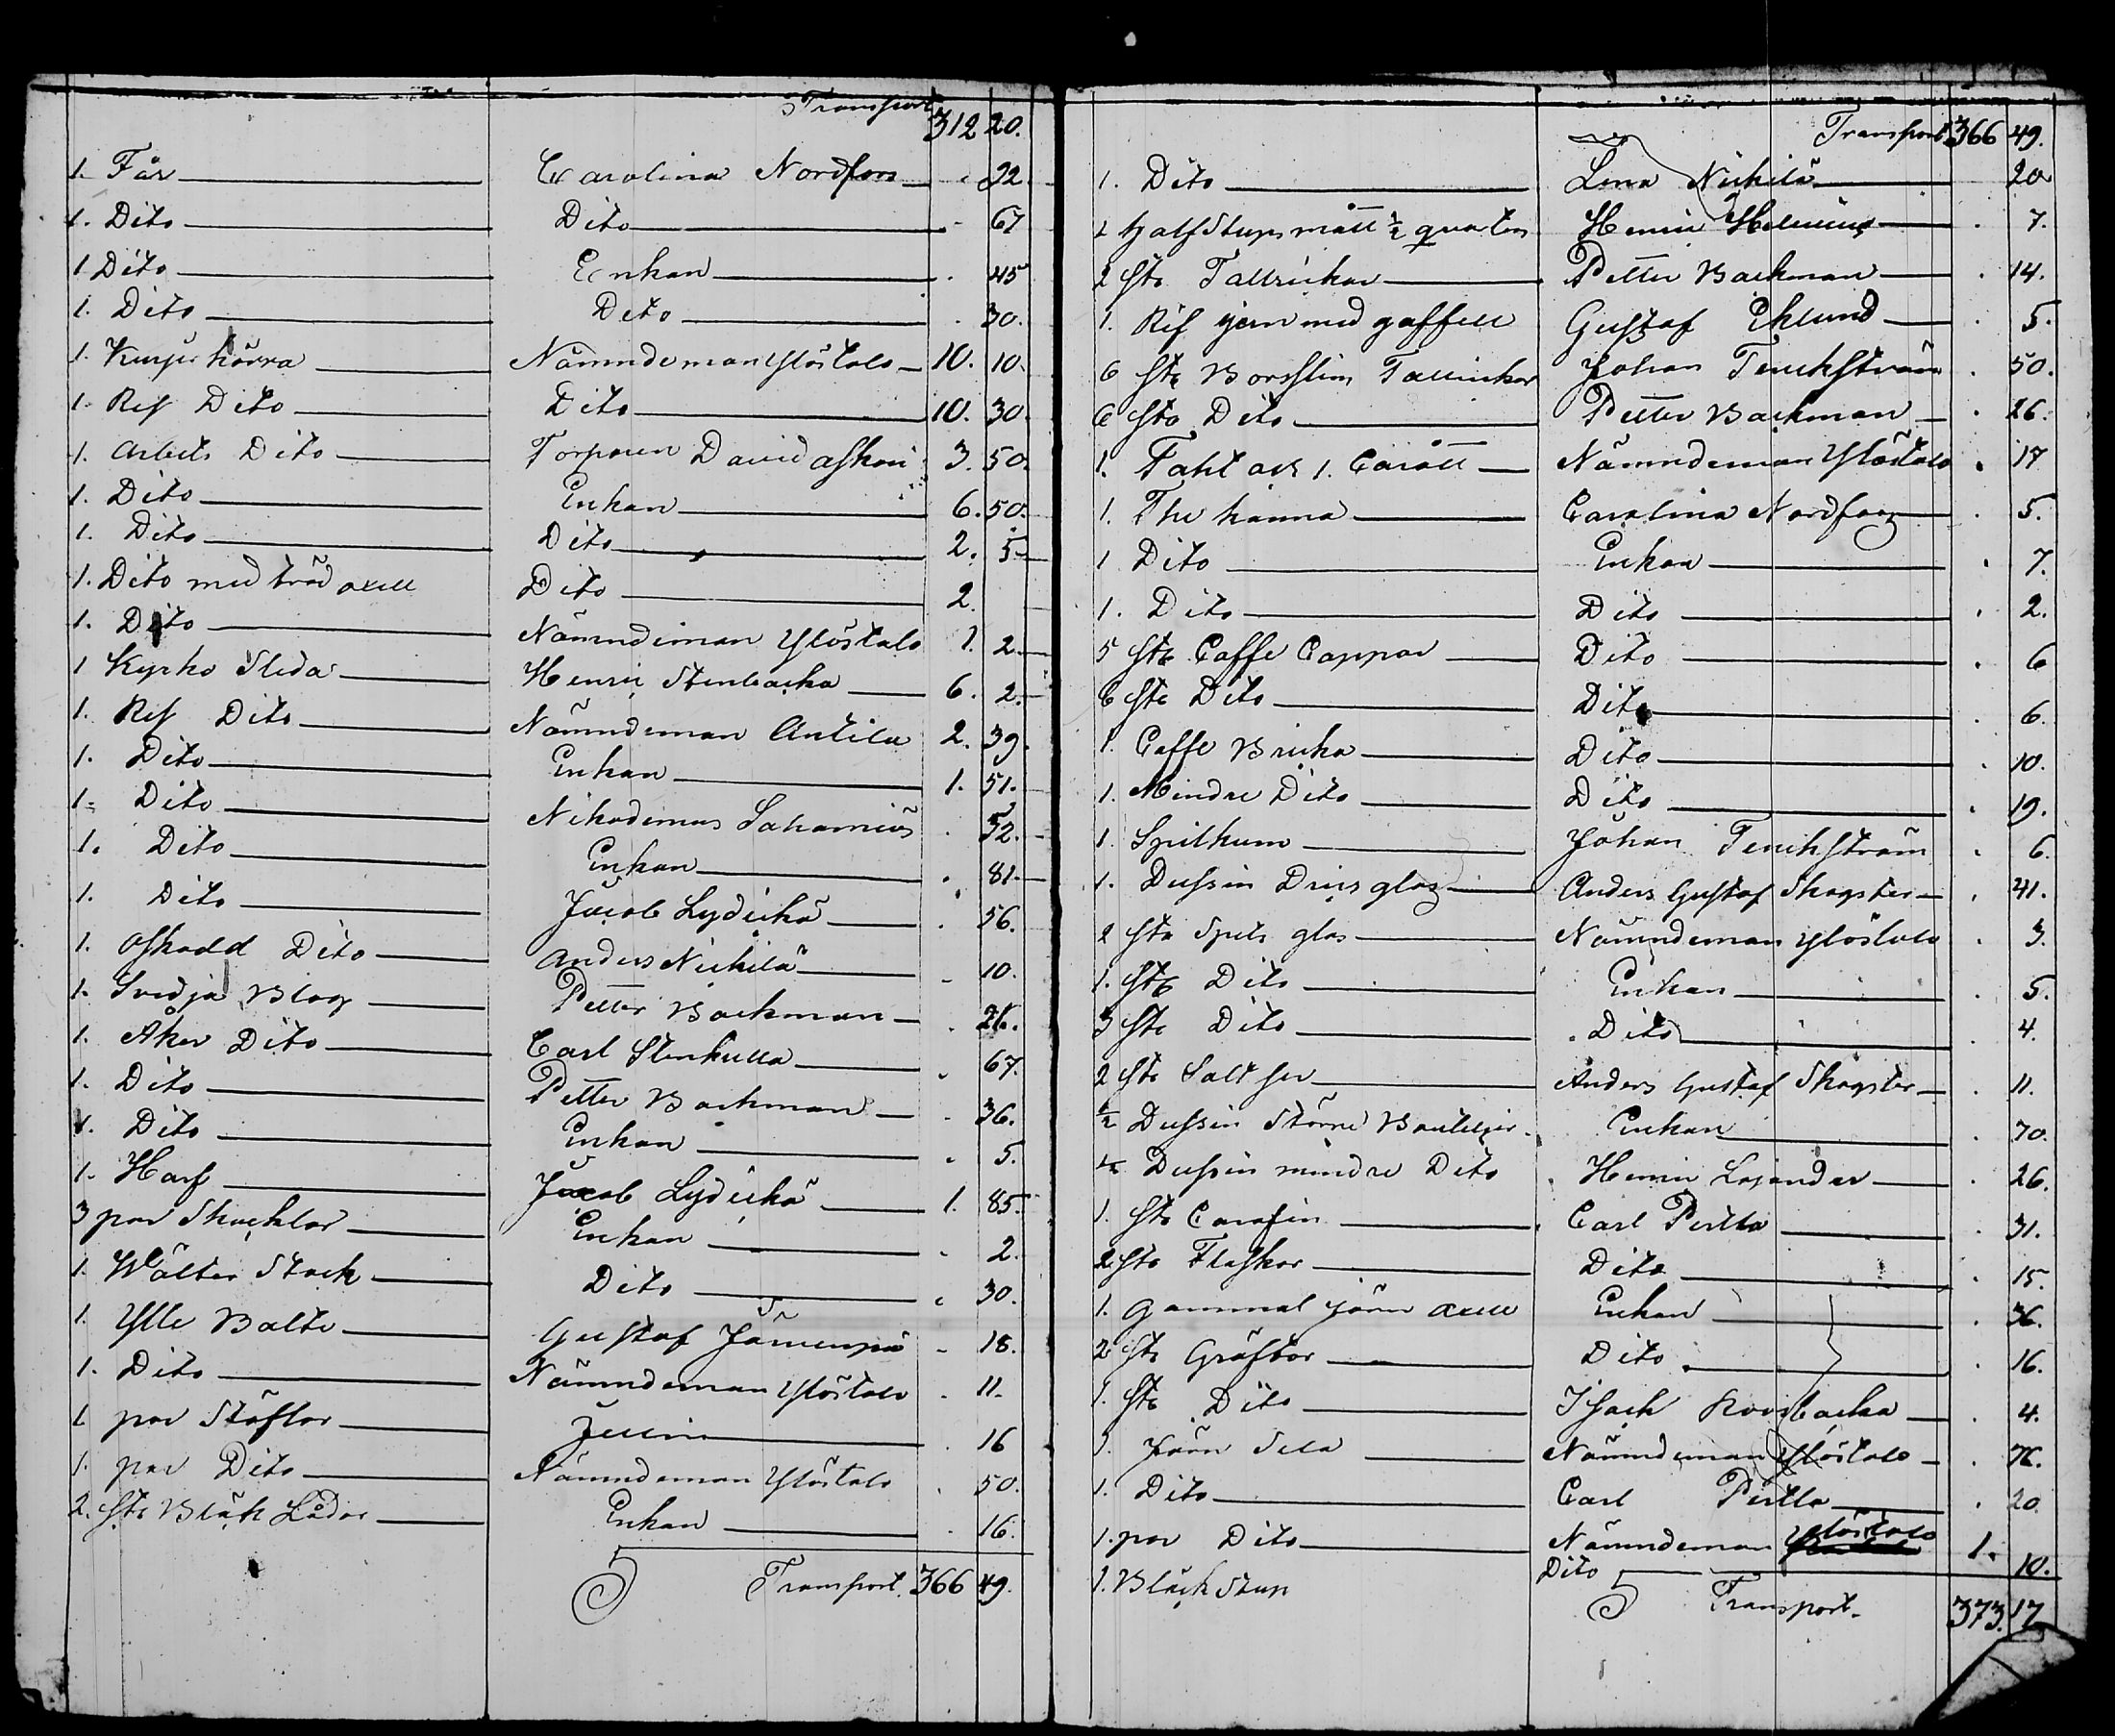 Transport 312 20.
1. Får Carolina Nordfors 92.
1. Dito Dito 67
1 Dito Enkan 45
1. Dito Dito 30.
1. kärra Nämndeman Ylöstalo 10. 10.
1. Res Dito Dito 10. 30.
1. Arbets Dito Torparen David 3. 50.
1. Dito Enkan 6. 50.
1. Dito Dito 2. 5
1. Dito med träd axell Dito 2.
1. Dito Nämndeman Ylöstalo 1. 2.
1 Kyrko Sleda Henric Stenbacka 6. 2.
1. Res Dito Nämndeman Antila 2. 39.
1. Dito Enkan 1. 51.
1. Dito Nikodemus 52.
1. Dito Enkan 81.
1. Dito Jacob Lydickä 56.
1. oskodd Dito Anders Nickilä 10.
1. Svedja Plog Petter Backman 26.
1. Åker Dito Carl Stenkulla 67.
1. Dito Petter Backman 36.
1. Dito Enkan 5.
1. Harf Jacob Lydickä 1. 85.
3 par Skacklor Enkan 2.
1. Wälter Stock Dito 30.
1 Ylle Bälte Gustaf 18.
1. Dito Nämndeman Ylöstalo 11.
1 par Stöflor 16
1. par Dito Nämndeman Ylöstalo 50.
2. st Bläck Lådor Enkan 16.
Transport. 366 49.
Transport 366 49.
1. Dito Lena Nickilä 20
1 halfstups mått ½ quarters Henric Helenius 7.
2 st Tallrickar Petter Backman 14.
1. Rif jern med gaffell Gustaf Eklund 5.
6 st Porsslins Tallrickar Johan Tenckström 50.
6 st Dito Petter Backman 26.
1. Faht och 1. Carott Nämndeman Ylöstalo 17
1. The kanna Carolina Nordfors 5.
1 Dito Enkan 7.
1. Dito Dito 2.
5 st Caffe Coppar Dito 6
6 st Dito Dito 6.
1. Caffe Bricka Dito 10.
1. Mindre Dito Dito 19.
1. Spilkum Johan Tenckström 6.
1. Dussin Drics glas Anders Gustaf Skogster 41.
2 st Spets glas Nämndeman Ylöstalo 3.
1. st Dito Enkan 5.
3 st Dito Dito 4.
2 st Salt ser Anders Gustaf Skogster 11.
½ Dussin Större Bouteljer Enkan 70.
½ Dussin mindre Dito Henric Lojander 26.
1. st Carafin Carl Perttu 31.
2 st Flaskor Dito 15.
1. gammal järn axell Enkan 36.
2 st Gräftor Dito 16.
1. st Dito Isack 4.
1. Järn Sela Nämndeman Ylöstalo 76.
1. Dito Carl Perttu 20
1. par Dito Nämndeman Ylöstalo 1.
1. Bläck Stop Dito 10.
Transport. 373. 17